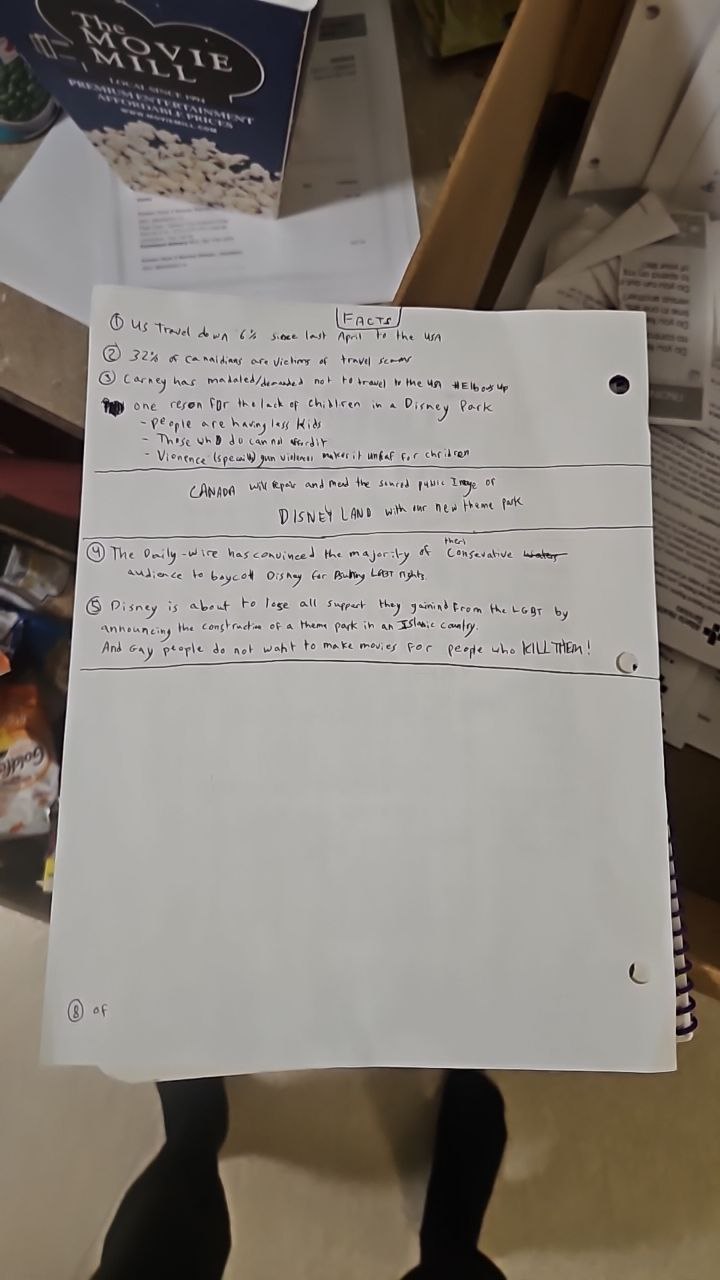 The
MOVIE
MILL
LOCAL SINCE 1994
PREMIUM ENTERTAINMENT
AFFORDABLE PRICES
WWW.MOVIEMILL.COM
FACTS
① US Travel down 6% since last April to the USA
② 32% of canaldians are victims of travel scams
③ Carney has madated/demanded not to travel to the USA #Elbows Up
one reson for the lack of children in a Disney Park
- people are having less kids
- Those who do can not afford it
- Vionence (specially) gun violence makes it unsaf for chrildren
CANADA will repair and mend the scured public Image of
DISNEY LAND with our new theme park
④ The Daily-Wire has convinced the majority of their Consevative
audience to boycott Disney for Psuhing LGBT rights.
⑤ Disney is about to lose all support they gainind from the LGBT by
announcing the construction of a theme park in an Islamic country.
And Gay people do not want to make movies for people who KILL THEM!
⑧ of
Goldfis